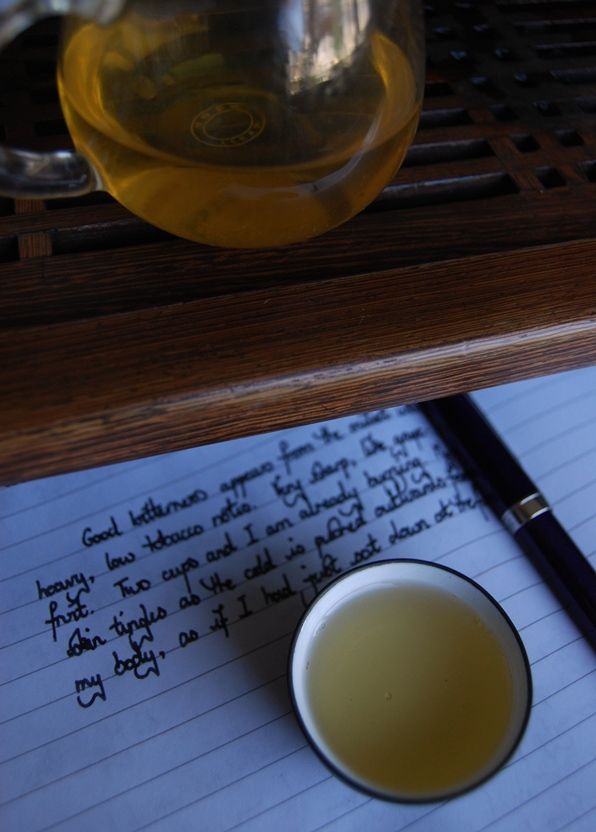 Good bitterness appears from the
heavy, low tobacco notes. Very deep. The
fruit. Two cups and I am already burning
skin tingles as the cold is pushed outwards
my body, as if I had just sat down at the